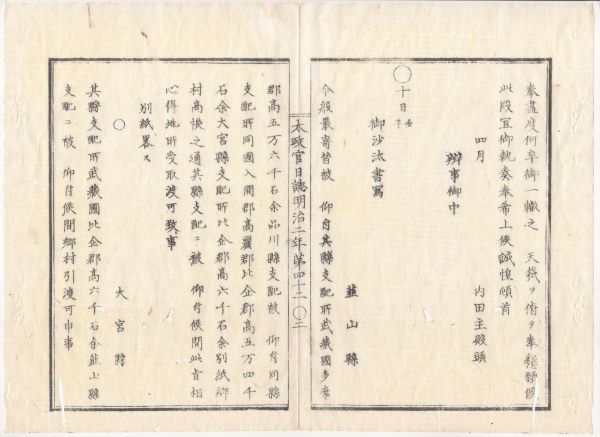 奉盡度何卒御一轍之　天裁ヲ俯ヲ奉懇願候
此段宜御執奏奉希上候誠惶頓首
四月　内田主殿頭
辨事御中
〇十日壬子
御沙汰書写
韮山縣
今般最寄替被　仰付其縣支配所武蔵國多摩
太政官日誌明治二年第四十二〇三
郡高五万六千石余品川縣支配被　仰付同縣
支配所同國入間郡高麗郡比企郡高五万四千
石余大宮縣支配所比企郡高六千石余別紙郷
村高帳之通其縣支配ニ被　仰付候間此旨相
心得地所受取渡可致事
別紙畧ス
〇　大宮縣
其縣支配所武蔵國比企郡高六千石余韮山縣
支配ニ被　仰付候間郷村引渡可申事